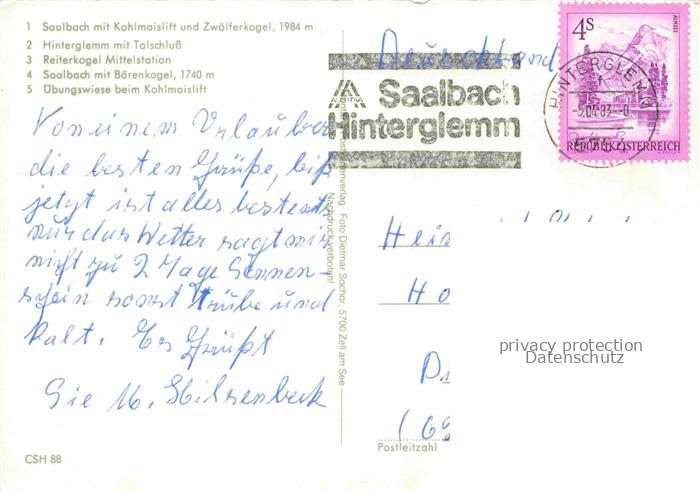 1 Saalbach mit Kohlmaislift und Zwölferkogel, 1984 m
2 Hinterglemm mit Talschluß
3 Reiterkogel Mittelstation
4 Saalbach mit Bärenkogel, 1740 m
5 Übungswiese beim Kohlmaislift
Von einem Urlauber
die besten Grüße, biß
jetzt ist alles bestens
nur das Wetter sagt mir
nicht zu 2 Tage Sonnen-
schein sonst trübe und
kalt. Es Grüßt
Sie M. Hilsenbeck
CSH 88
Foto Dietmar Sochor, 5700 Zell am See
Nachdruck verboten!
Deutschland
AUSTRIA
Saalbach
Hinterglemm
HINTERGLEMM
5754
4S
ALMSEE
REPUBLIK ÖSTERREICH
Hei
Ho
(69
Postleitzahl
privacy protection
Datenschutz